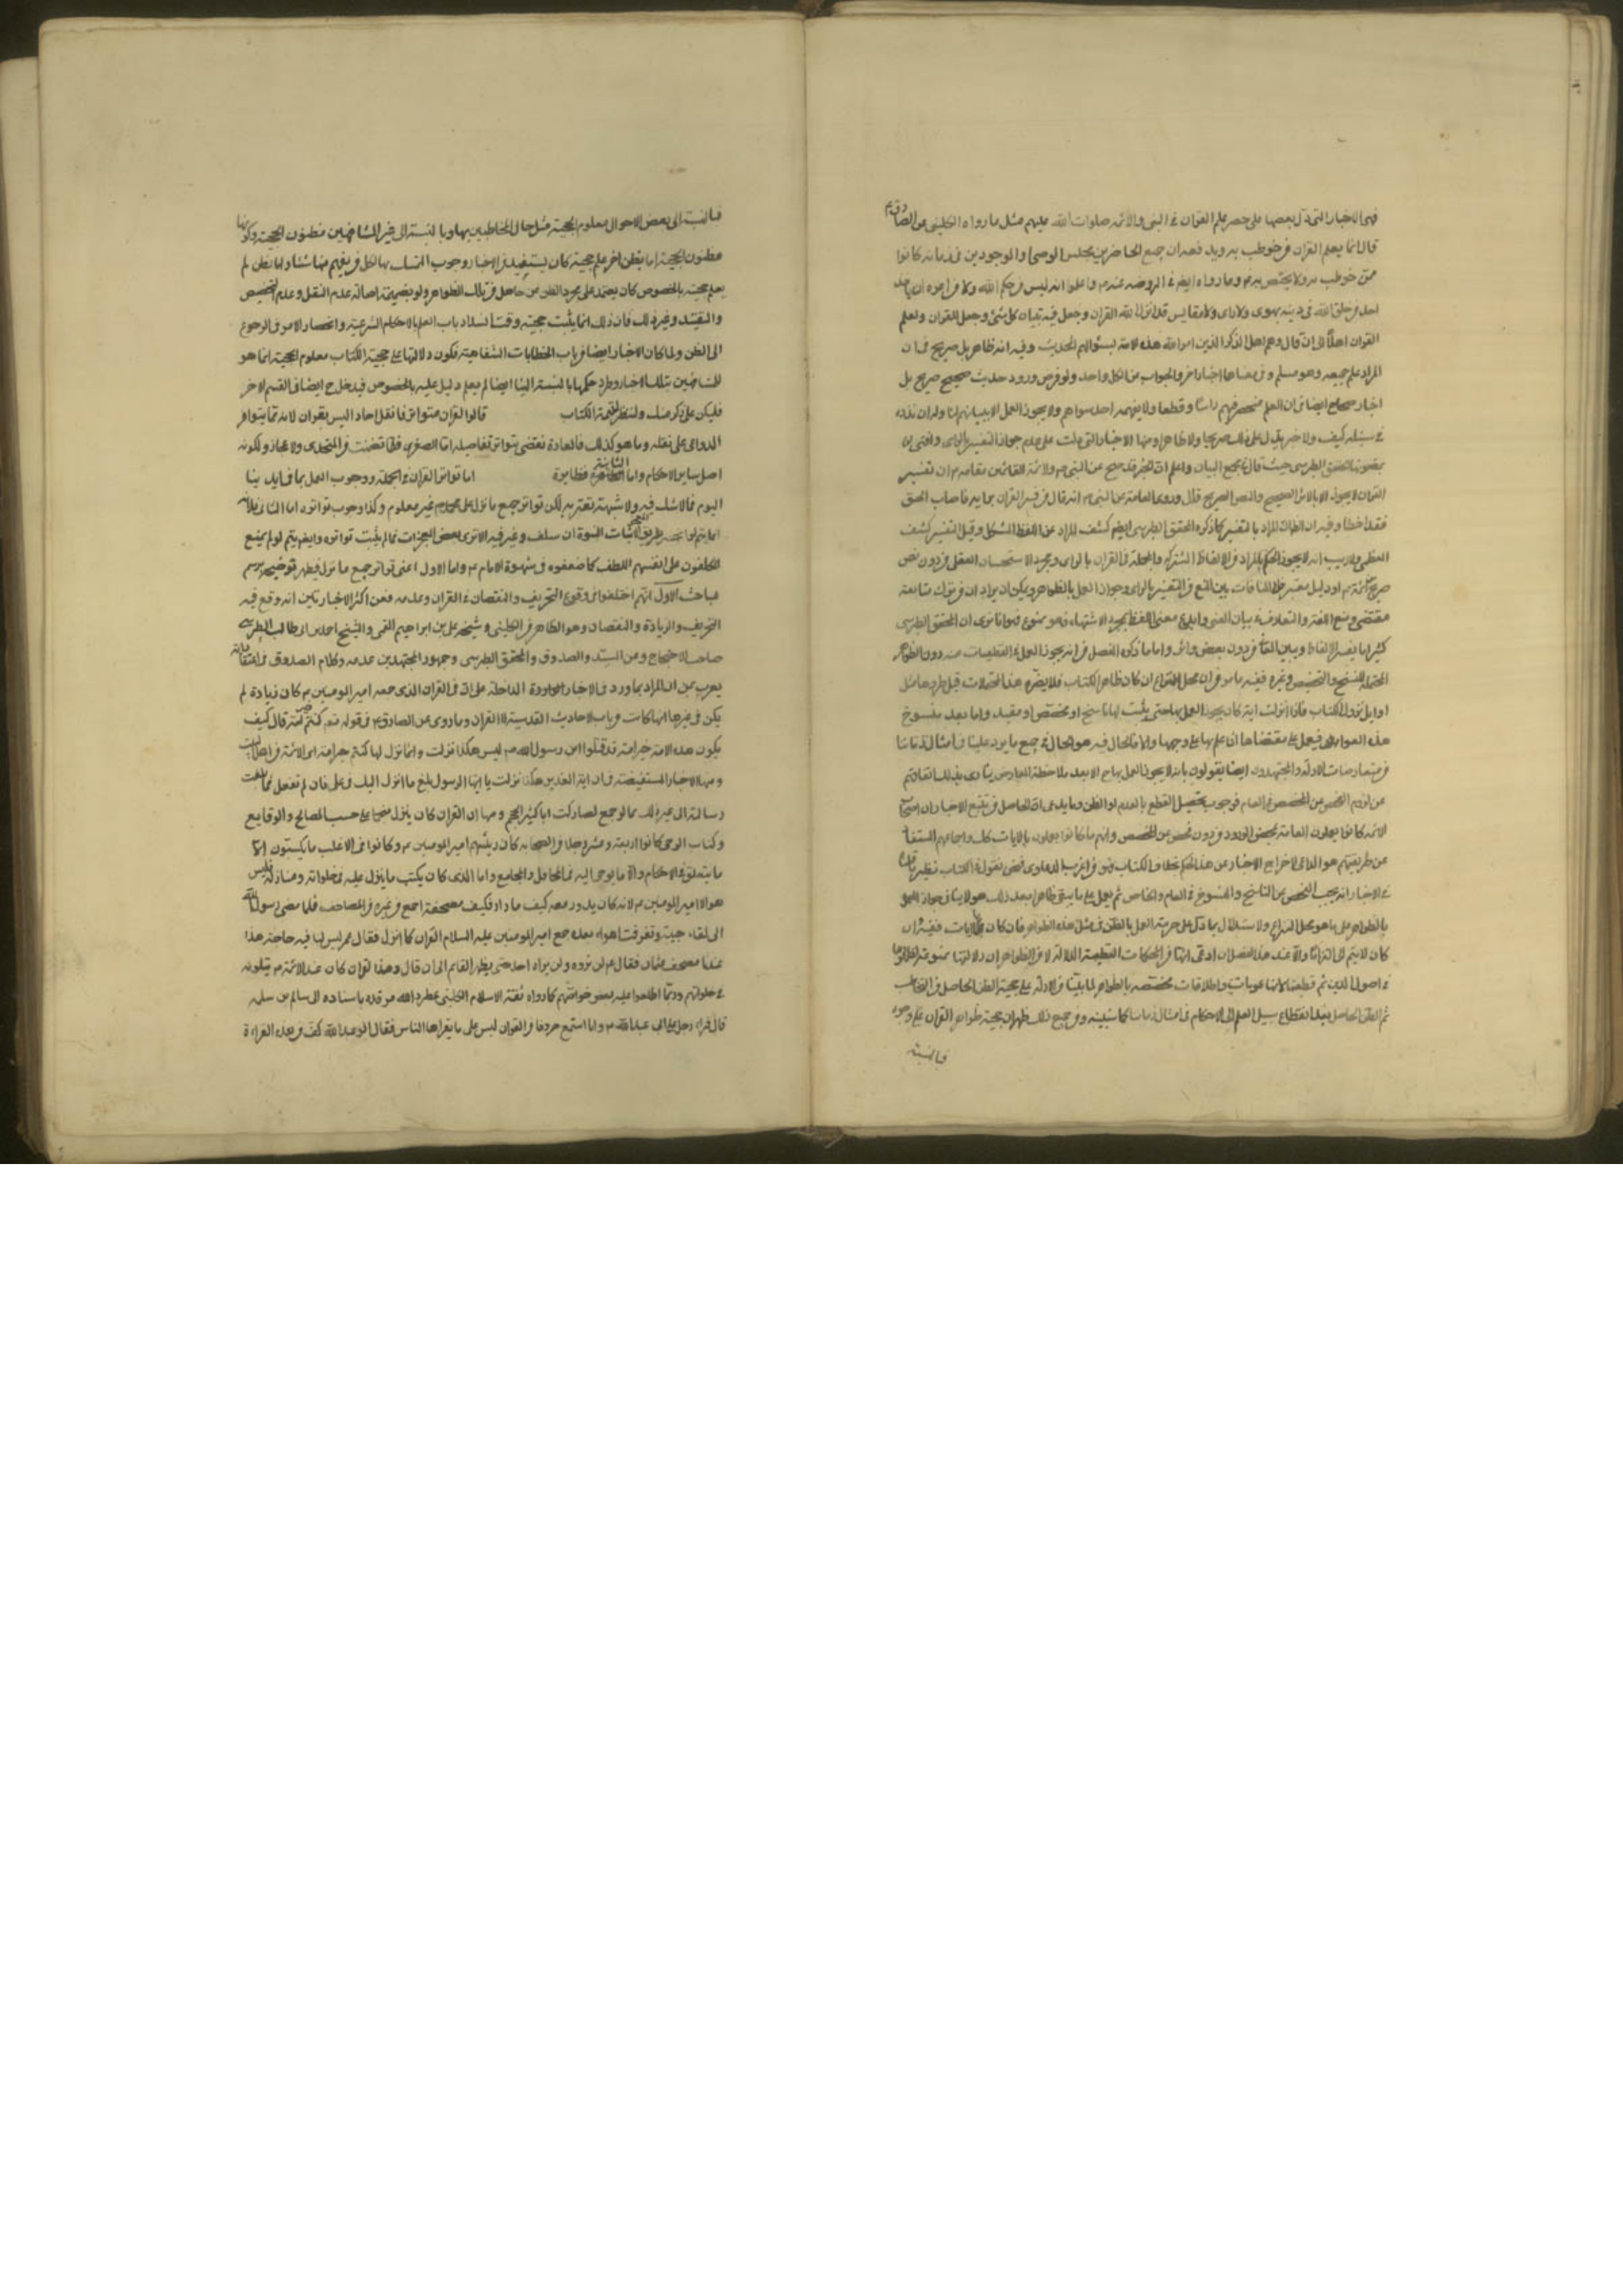 فهى الاخبار التى تدل بعضها على حصر علم القران فى النبى والائمه صلوات الله عليهم مثل ما رواه الكلينى عن الصادق ع
قال انما يعلم القران من خوطب به ويد فعه ان جميع الحاضرين مجلس الوحى او الموجودين فى زمانه كانوا
ممن خوطب به ولا يختص به وما رواه ايضا فى الروضه عنه واعلموا انه ليس من علم الله ولا من امره ان ياخذ
احد من خلق الله فى دينه بهوى ولا راى ولا مقاييس قد انزل الله القران وجعل فيه تبيان كل شئ وجعل للقران ولعلم
القران اهلا الى ان قال وهم اهل الذكر الذين امر الله هذه الامة بسؤالهم الحديث وفيه انه ظاهر بل صريح فى ان
المراد علم جميعه وهو مسلم وفى معناها اخبار اخر والجواب عن الكل واحد ولو فرض ورود حديث صحيح صريح بل
اخبار صحاح ايضا فى ان العلم منحصر فيهم راسا وقطعا ولا يفهمه احد سواهم ولا يجوز العمل الا ببيانهم
كيف ولا خبر يدل على ذلك صريحا ولا ظاهرا ومنها الاخبار التى دلت على عدم جواز التفسير بالراى وافتى
بمضمونها المحقق الطبرسى حيث قال فى مجمع البيان واعلم ان الخبر قد صح عن النبى وعن الائمة القائمين مقامه ان تفسير
القران لا يجوز الا بالاثر الصحيح والنص الصريح قال وروى العامة عن النبى انه قال من فسر القران برايه فاصاب الحق
فقد اخطا وفيه ان الظاهر ان المراد بالتفسير كما ذكره المحقق الطبرسى ايضا كشف المراد عن اللفظ المشكل وقيل التفسير كشف
المغطى ولا ريب انه لا يجوز الحكم بالمراد من الالفاظ المشتركه والمجملة فى القران بالراى وبمجرد الاستحسان العقلى من دون نص
صريح منهم او دليل معتبر فلا منافات بين المنع من التفسير بالراى وجواز العمل بالظواهر ويمكن ان يراد ان من ترك متابعة
مقتضى وضع اللغة والمتعارف فى بيان المعنى وابدع معنى اللفظ بمجرد الاشتهاء فهو ممنوع
كثيرا ما يفسر الالفاظ ويبين واما ما ذكره المفصل من انه يجوز العمل فى القطعيات منه دون الظواهر
المحتملة للنسخ والتخصيص وغيره ففيه ما مر من ان محل النزاع ان كان ظاهر الكتاب فلا يضره هذه المحتملات
اوايل نزول الكتاب فاذا انزلت اية كان يجوز العمل بها حتى يثبت لها ناسخ او مخصص او مقيد واما بعد سنوح
هذه العوارض فيعمل على مقتضاها ان علم بها على وجهها والا فالحال فيه هو الحال فى جميع ما يرد علينا فى امثال زماننا
من تعارضات الادلة والمجتهدون ايضا يقولون بانه لا يجوز العمل بها ح الا بعد ملاحظة المعارض ينادى بذلك اتفاقهم
عن لزوم الفحص عن المخصص فى العام ووجوب تحصيل القطع بالعدم او الظن وما يدعى ان الحاصل من تتبع الاخبار ان اصحاب
الائمه كانوا يعملون العامة بمحض الورود من دون فحص عن المخصص وانهم ما كانوا يعملون بالايات كك
عن طريقتهم هو الداعى لاخراج الاخبار عن هذا الحكم بخلاف الكتاب فهو من اغرب الدعاوى فنحن نقول فى الكتاب نظير
فى الاخبار انه يجب الفحص عن الناسخ والمنسوخ فى العام والخاص ثم يعمل على ما يبقى ظاهرا بعد ذلك
بالظواهر على ما هو محل النزاع والاستدلال بما دل على حرمة العمل بالظن فى مثل هذه الظواهر فان كان بالايات ففيه ان
كان لا يتم الا التزاما
فى اصول الدين ثم قطعنا واطلاقات مخصصه بالظواهر لما بينا من الادلة على حجية الظن الحاصل من التخاطب
ثم الظن الحاصل بعد انقطاع سبيل العلم الى الاحكام فى امثال زماننا كما سنبينه ومن جميع ذلك ظهر ان حجية ظواهر القران على وجوه
فبالنسبة
فبالنسبة الى بعض الاحوال معلوم الحجية مثل حال المخاطبين بها وبالنسبة الى غير المشافهين مظنون الحجية وكونها
مظنون الحجية اما بظن اخر علم حجيته كان يستفيد من الاخبار وجوب التمسك بها لكل من يفهم منها شئا واما بظن لم
يعلم حجيته بالخصوص كان يعتمد على مجرد الظن الحاصل من تلك الظواهر ولو بضميمة اصالة عدم النقل وعدم التخصيص
والتقييد وغير ذلك فان ذلك انما يثبت حجيته وقت انسداد باب العلم بالاحكام الشرعية وانحصار الامر فى الرجوع
الى الظن ولما كان الاخبار ايضا من باب الخطابات الشفاهية فكون دلالتها على حجية الكتاب معلوم الحجية انما هو
للمشافهين بتلك الاخبار وطرد حكمها بالنسبة الينا ايضا لم يعلم دليل عليه بالخصوص فيدخل ح ايضا فى القسم الاخر
فليكن على ذكر منك ولننظر لتتمة الكتاب قالوا القران متواتر فما نقل احاد اليس بقران لانه مما يتوافر
الدواعى على نقله وما هو كذلك فالعادة تقضى بتواتر تفاصيله اما الصغرى فلما تضمنت من التحدى والاعجاز ولكونه
اصل ساير الاحكام واما الثانية فظاهرة اما تواتر القران فى الجملة ووجوب العمل بما فى ايدينا
اليوم فمما لا شك فيه ولا شبهة تعتريه لكن تواتر جميع ما نزل على محمد غير معلوم وكذا وجوب تواتره اما الثانى فلانه
انما يتم لو انحصر طريق المعجزة واثبات النبوة لمن سلف وغير فيه الا ترى بعض المعجزات مما لم يثبت تواتره وايضا يتم لو لم يمنع
المكلفون على انفسهم اللطف كما صنعوه فى شهود الامام واما الاول اعنى تواتر جميع ما نزل فيظهر توضيحه برسم
مباحث الاول انهم اختلفوا فى وقوع التحريف والنقصان فى القران وعدمه فعن اكثر الاخباريين انه وقع فيه
التحريف والزيادة والنقصان وهو الظاهر من الكلينى وشيخه على بن ابراهيم القمى والشيخ احمد بن ابى طالب الطبرسى
صاحب الاحتجاج وعن السيد والصدوق والمحقق الطبرسى وجمهور المجتهدين عدمه وكلام الصدوق فى اعتقاداته
يعرب عن ان المراد بما ورد فى الاخبار الواردة الدالة على ان فى القران الذى جمعه امير المومنين كان زيادة لم
يكن فى غيرها انها كانت من باب الاحاديث القدسية لا القران وما روى عن الصادق ع فى قوله تعم كنتم خير امة قال كيف
يكون هذه الامة خير امة قد قتلوا ابن رسول الله ص ليس هكذا نزلت وانما نزل لها كنتم خير ائمة اى الائمة من اهل البيت
ومنها الاخبار المستفيضة فى ان اية الغدير هكذا نزلت يا ايها الرسول بلغ ما انزل اليك فى على فان لم تفعل فما بلغت
رسالته الى غير ذلك مما لو جمع لصار كتابا كثير الحجم ومنها ان القران كان ينزل منجما على حسب المصالح والوقايع
وكتاب الوحى كانوا اربعة وعشر رجلا من الصحابه كان رئيسهم امير المومنين وكانوا فى الاغلب ما يكتبون الا ما
ما يتعلق فى الاحكام والا ما يوحى اليه فى المحافل والمجامع واما الذى كان يكتب ما ينزل عليه فى خلواته ومنازله فليس
هو الا امير المومنين لانه كان يدور معه كيف ما دار فكيف مصحفه اجمع من غيره من المصاحف فلما مضى رسول الله
الى لقاء حبيبه وتفرقت اهواء بعده جمع امير المومنين عليه السلام القران كما انزل فقال عمر ليس لنا فيه حاجة هذا
عندنا مصحف عثمان فقال ع لن تروه ولن يراه احد حتى يظهر القايم الى ان قال وهذا القران كان عند الائمة يتلونه
فى خلواتهم وربما اطلعوا عليه بعض خواصهم كما رواه ثقة الاسلام الكلينى عطر الله مرقده باسناده الى سالم بن سلمه
قال قرا رجل على ابى عبد الله وانا استمع حروفا من القران ليس على ما يقراها الناس فقال ابو عبد الله كف عن هذه القراءة